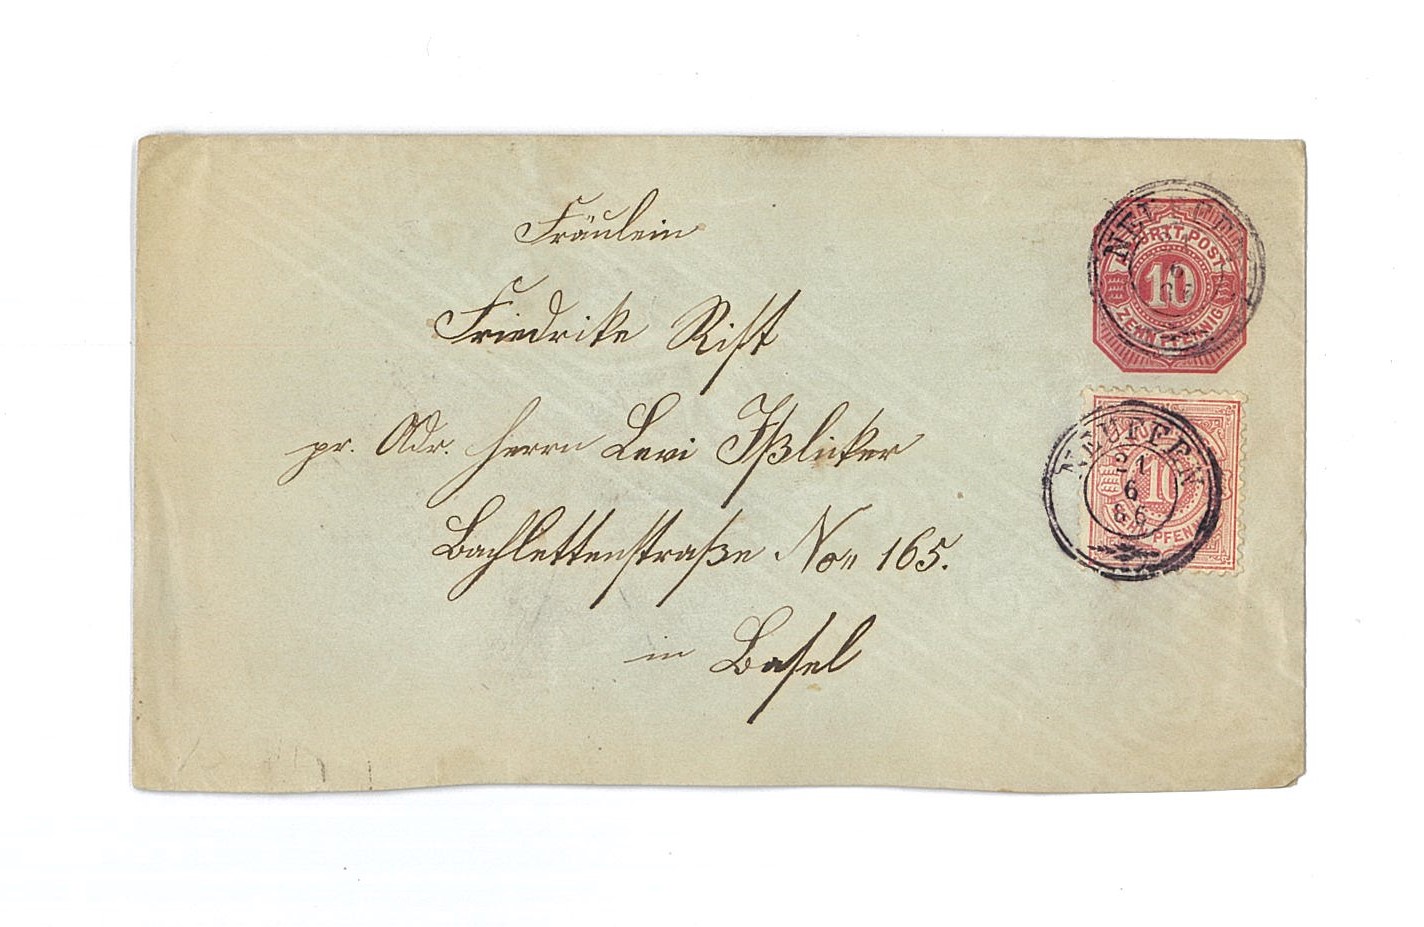 Fräulein
Friedrike Rist
pr. Adr. Herrn Levi Ißlicker
Bachlettenstraße No 165.
in Basel
WÜRTT. POST
10
ZEHN PFENNIG
NEUFFEN
21
6
86
10
PFENNIG